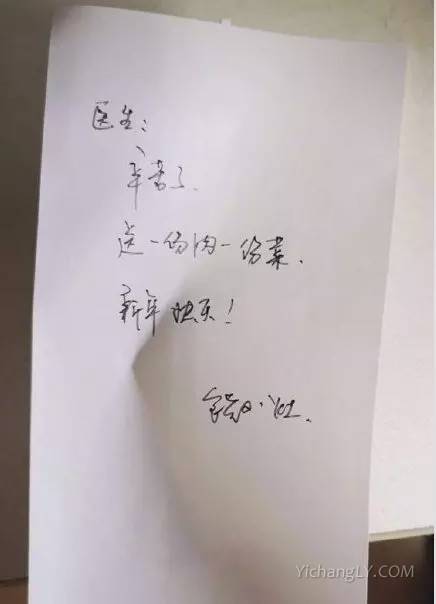 医生：
辛苦了.
送一份肉一份菜.
新年快乐！
小灶.
YichangLY.COM